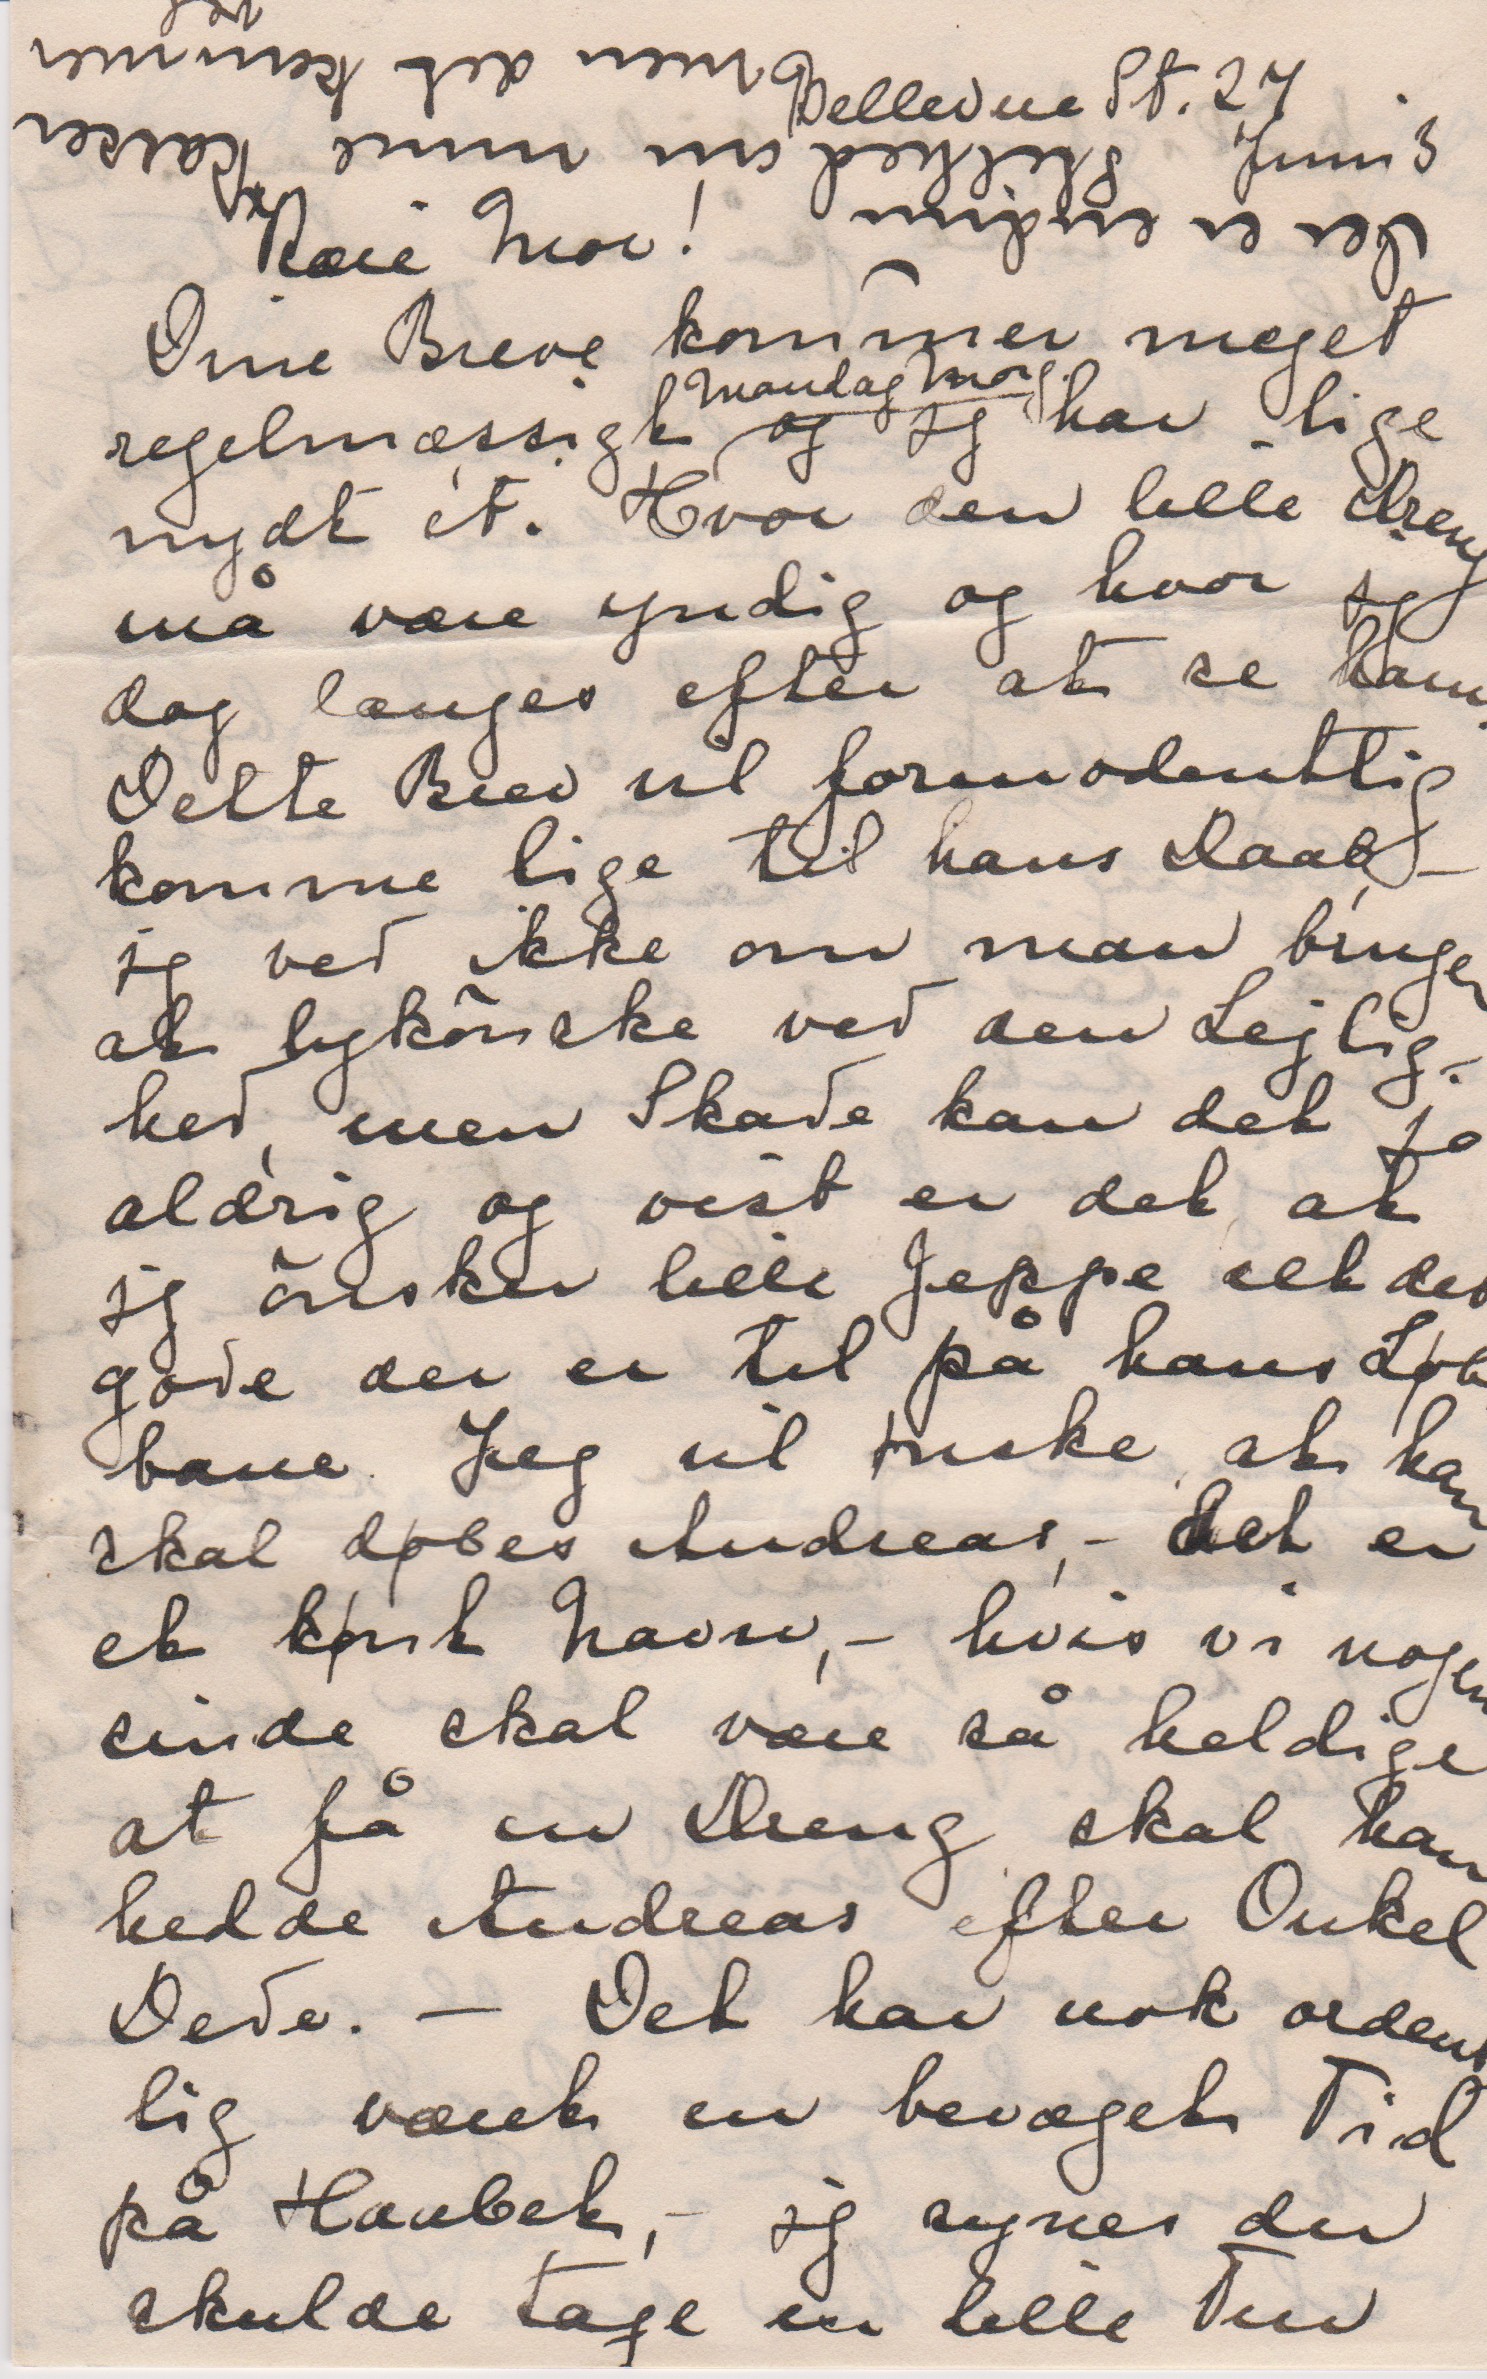 Bellevue St. 27
Juni 3
Kære Mor!
Dine Breve kommer meget
Mandag Morg.
regelmæssigt og jg har lige
nydt ét. Hvor den lille Dreng
må være yndig og hvor jg
dog længes efter at se ham.
Dette Brev vil formodentlig
komme lige til hans Daab –
jg ved ikke om man bruger
at lykönske ved den Lejlig-
hed, men Skade kan det jo
aldrig og vist er det at
jg önsker lille Jeppe alt det
gode der er til på hans Løb
bane. Jeg vil ønske at han
skal døbes Andreas, – det er
et kønt Navn, – hvis vi nogen
sinde skal være så heldige
at få en Dreng skal han
hedde Andreas efter Onkel
Dede. – Det har nok ordent
lig været en bevæget Tid
på Hanbek, – jg synes du
skulde tage en lille Tur
Der er endnu Stilhed in mine Kasser
men det kommer